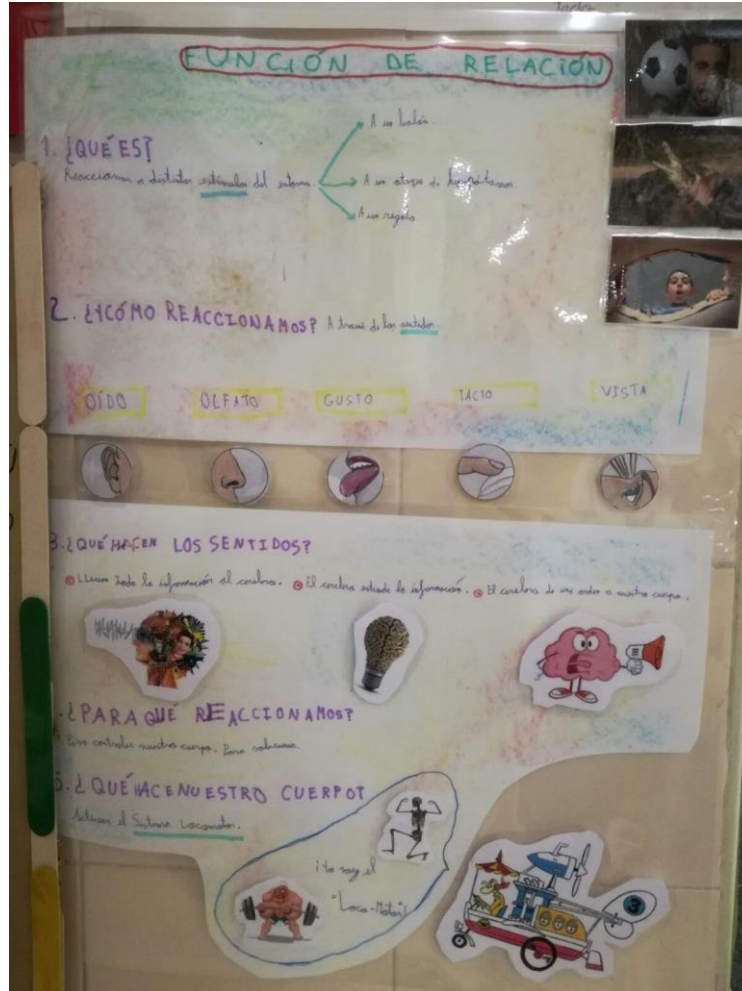 Tacto
FUNCIÓN DE RELACIÓN
1. ¿QUÉ ES?
A un balón.
Reaccionamos a distintos estímulos del entorno.
A un ataque de
A un regalo
2. ¿Y CÓMO REACCIONAMOS? A través de los sentidos.
OÍDO OLFATO GUSTO TACTO VISTA
3. ¿QUÉ HACEN LOS SENTIDOS?
Llevan toda la información al cerebro. El cerebro entiende la información. El cerebro da una orden a nuestro cuerpo.
. ¿PARA QUÉ REACCIONAMOS?
Para controlar nuestro cuerpo. Para sobrevivir.
5. ¿QUÉ HACE NUESTRO CUERPO?
Activar el Sistema Locomotor.
¡Yo soy el
"Loco-Motor"!
3